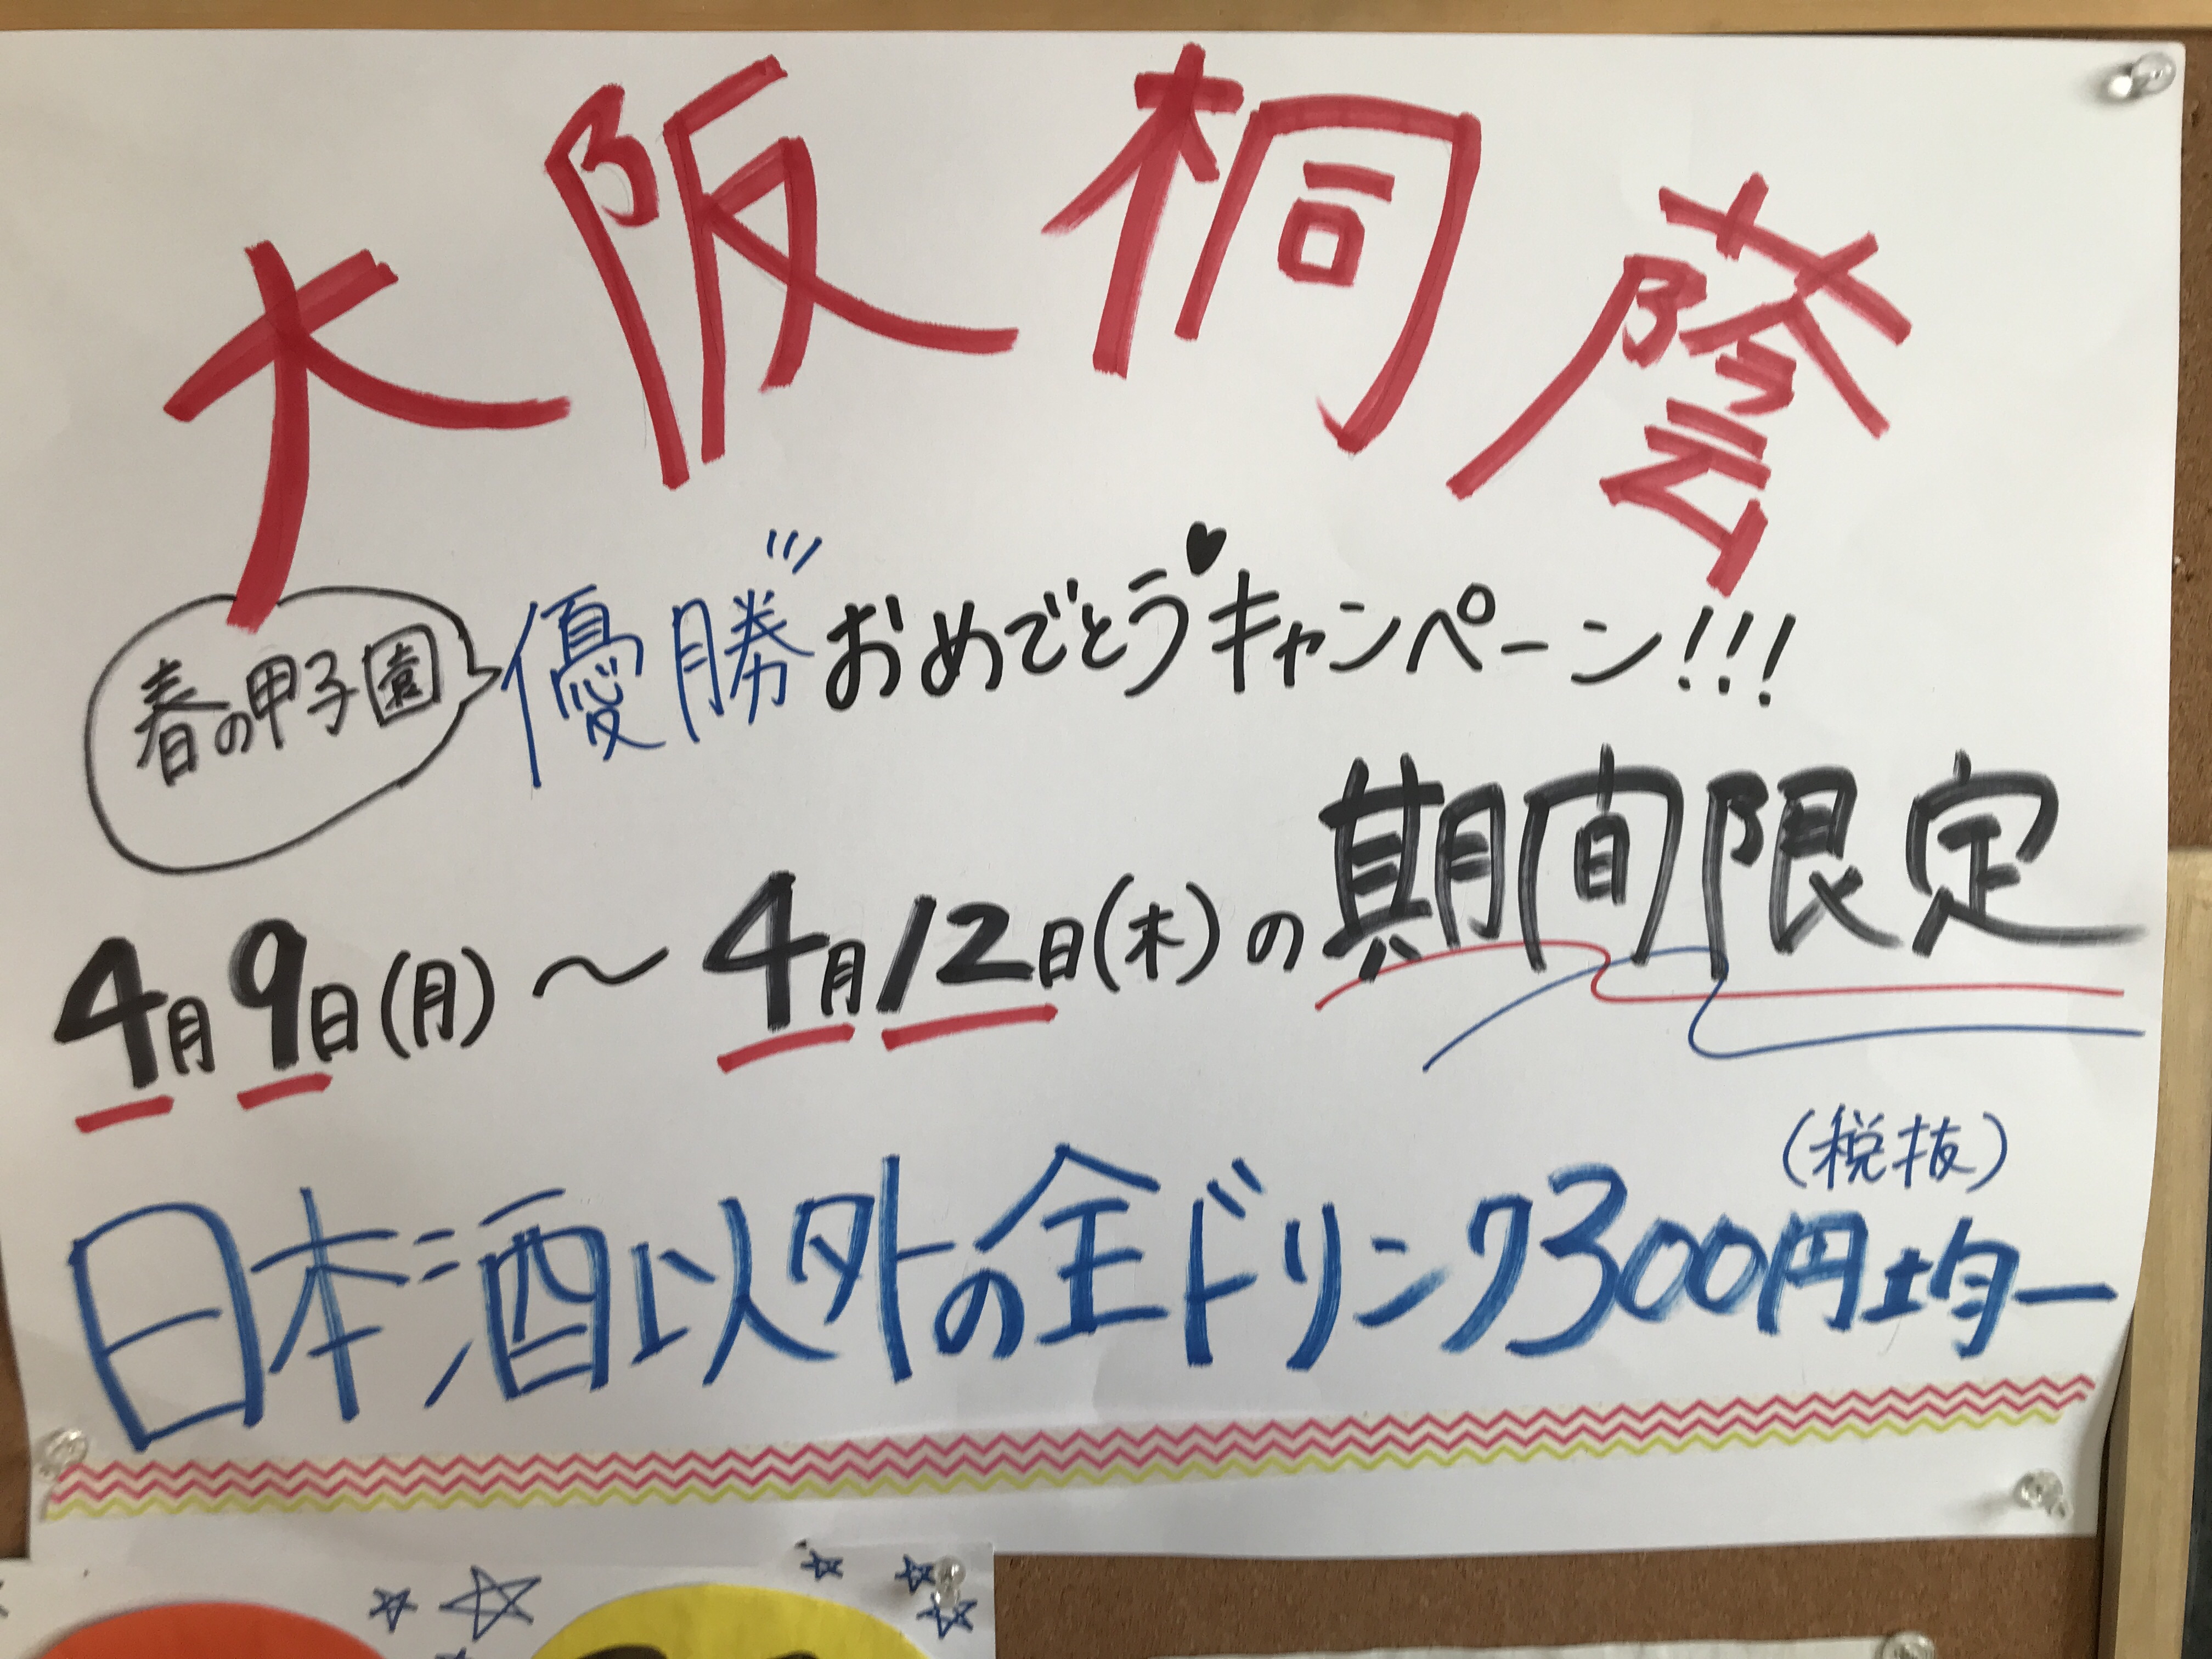 大阪桐蔭
春の甲子園 優勝おめでとう♥キャンペーン!!!
4月9日(月)〜4月12日(木)の期間限定
(税抜)
日本酒以外の全ドリンク300円均一